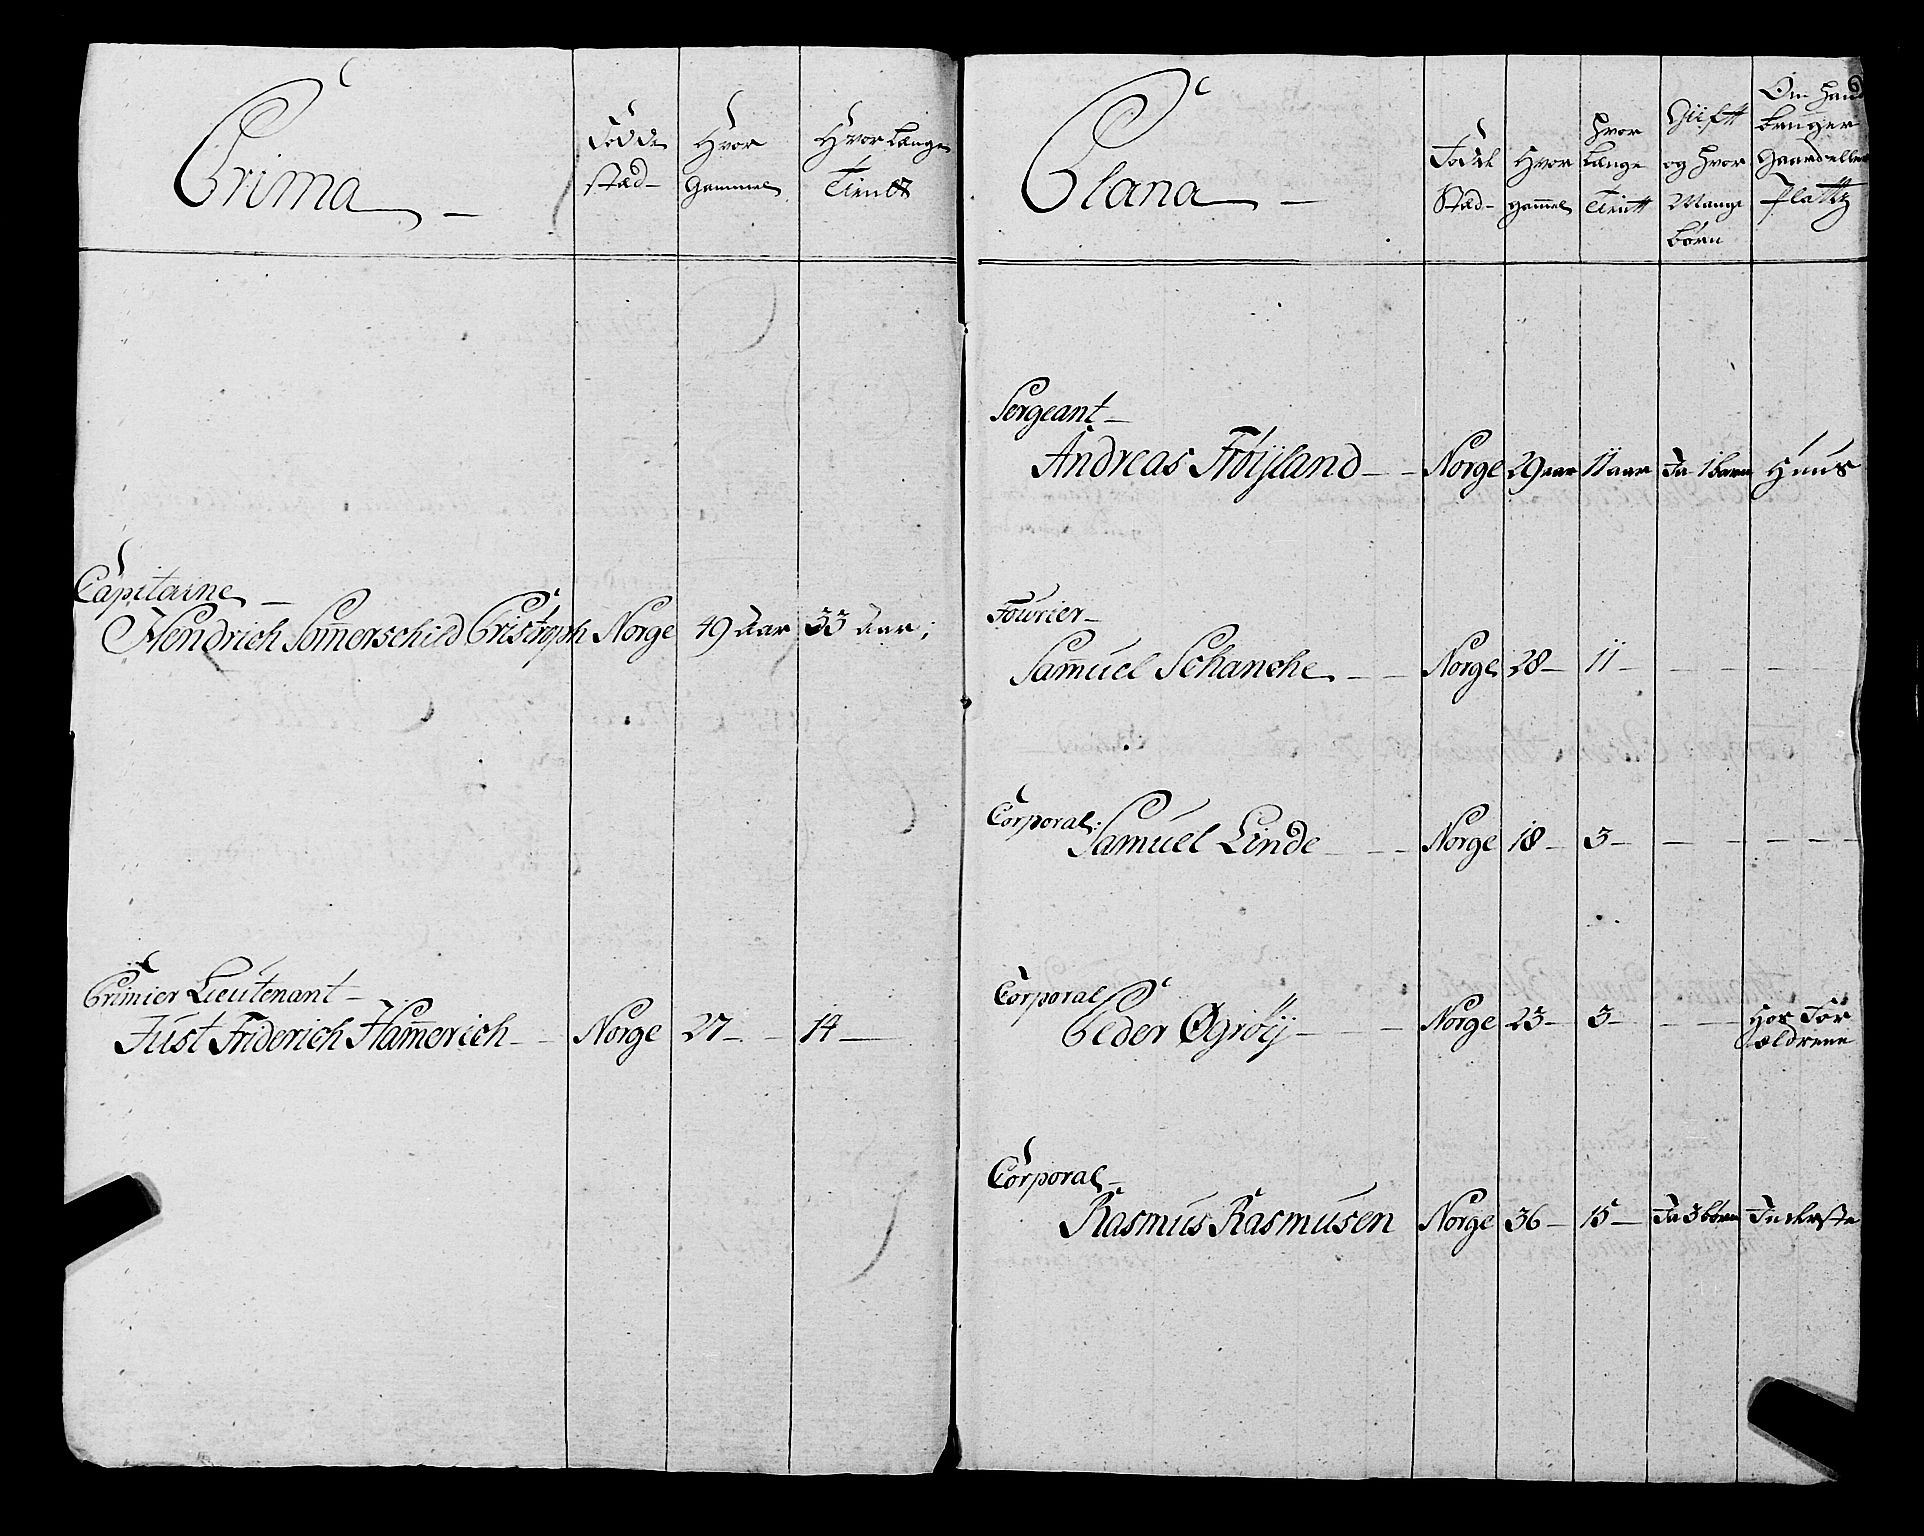 Prima
Føde
stæd
Hvor
Gammel
Hvor Længe
Tient
Capitaine
Hendrich Som̄erschild Cristoph Norge 49 Aar 33 Aar;
Primier Lieutenant
Just Friderich Ham̄erich Norge 27 14
Plana
Føde
Stæd
Hvor
gam̄el
Hvor
Længe
Tient
Gift
og Hvor
Mange
børn
Om Hand
bruger
Gaard eller
Platz
Sergeant
Andreas Frøijland Norge 29 aar 11 aar Ja 1 barn Huus
Fourier
Sam̄uel Schanche Norge 28 11
Corporal:
Samuel Linde Norge 18 3
Corporal
Peder Øgrøij Norge 23 3 Hos For
ældrene
Corporal
Rasmus Rasmusen Norge 36 15 Ja 3 børn Inderste